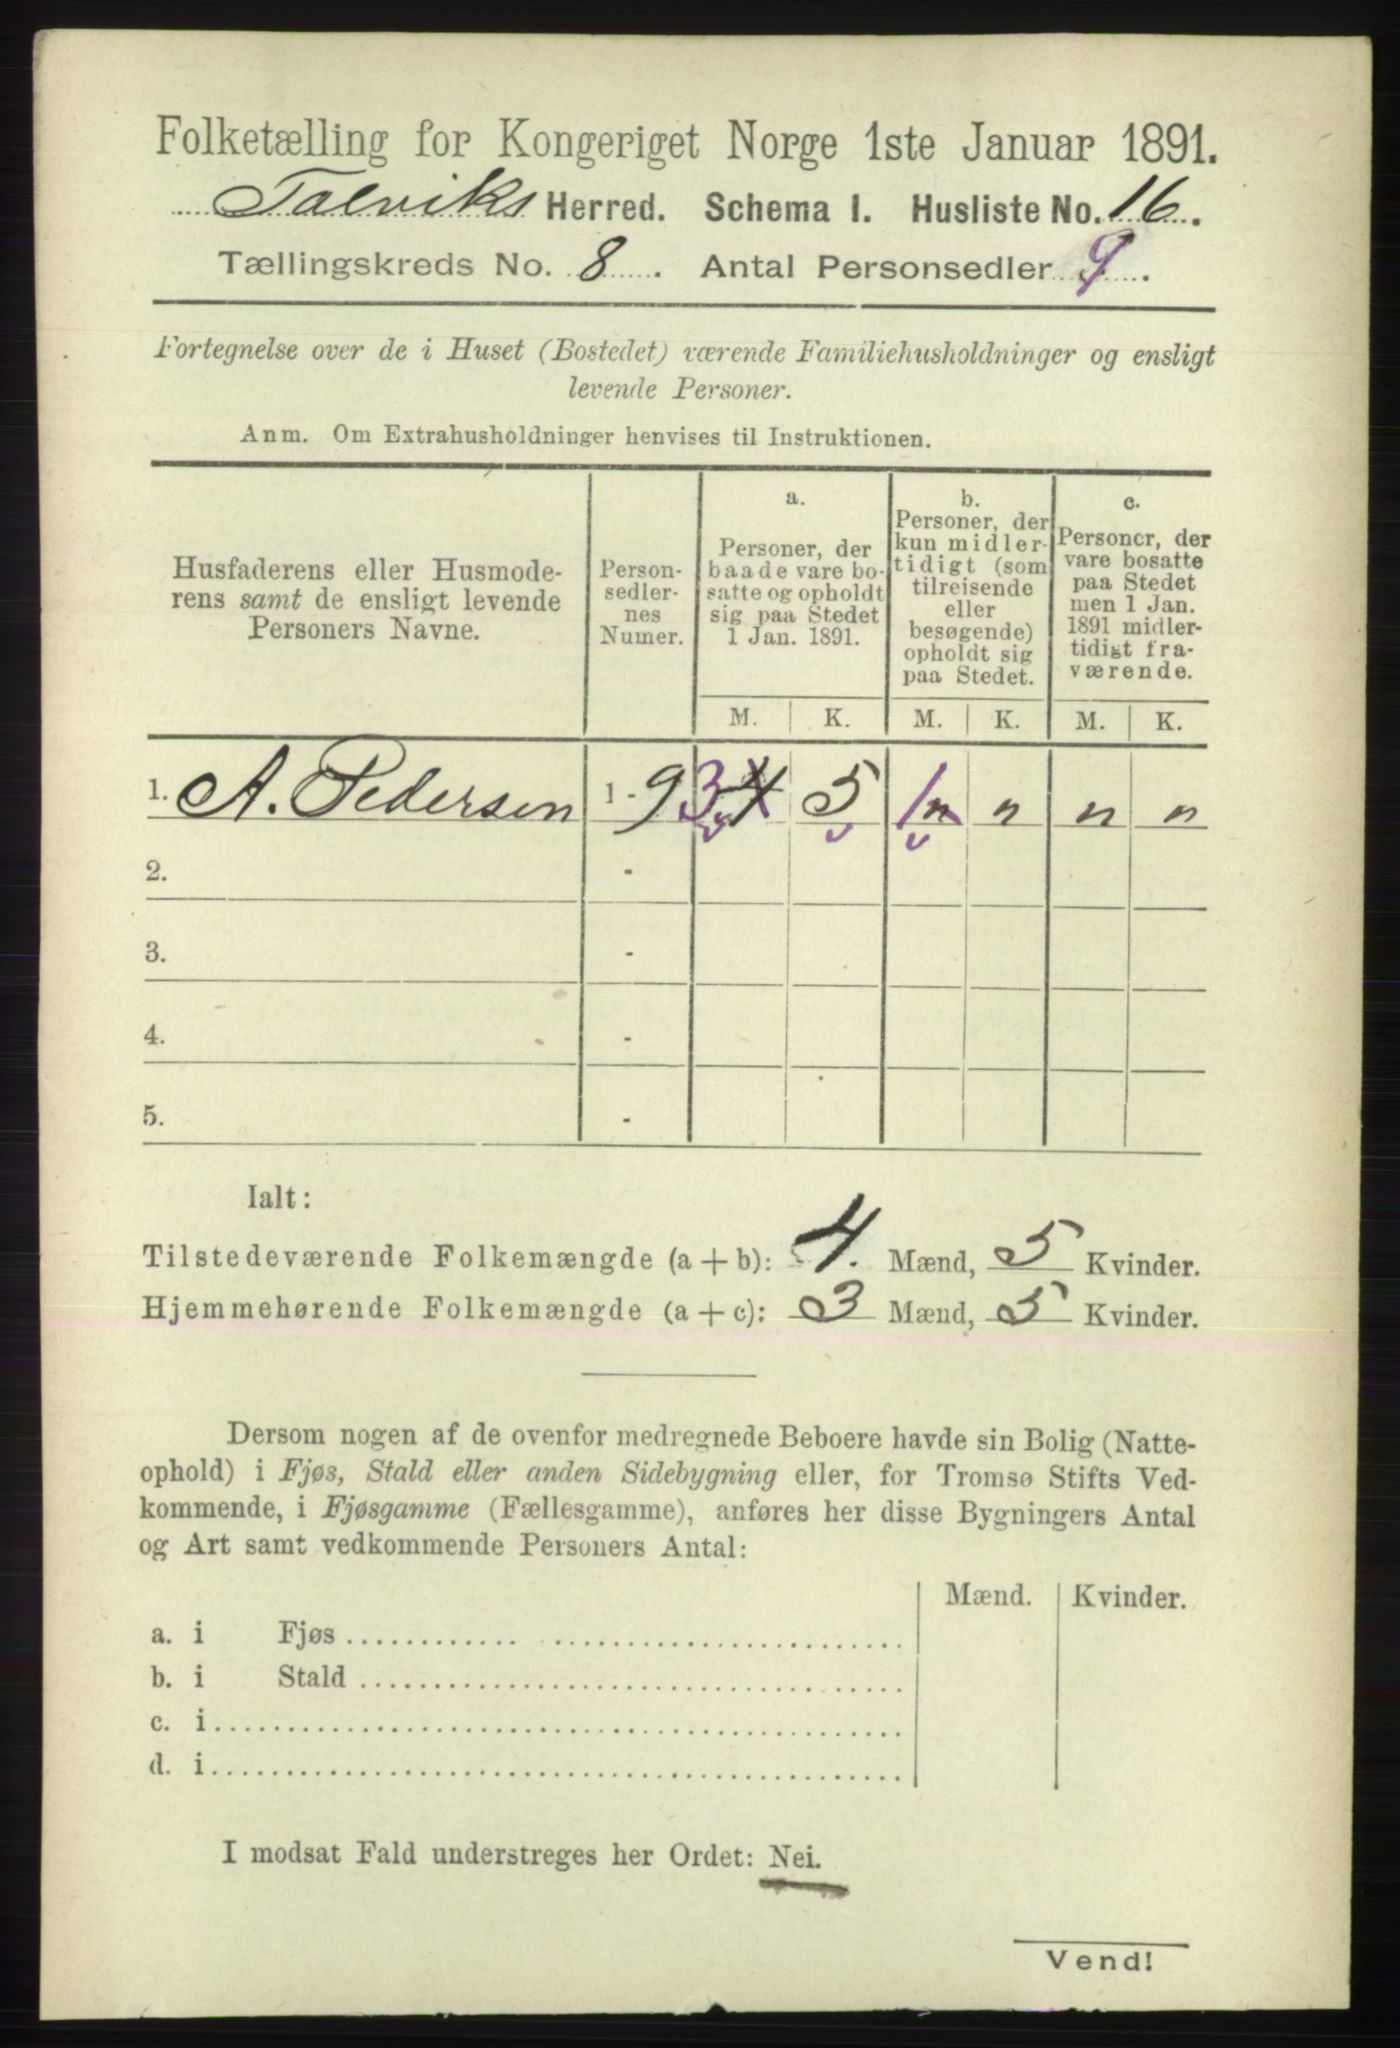 Folketælling for Kongeriget Norge 1ste Januar 1891.
Talviks Herred. Schema I. Husliste No. 16.
Tællingskreds No. 8. Antal Personsedler 9.
Fortegnelse over de i Huset (Bostedet) værende Familiehusholdninger og ensligt
levende Personer.
Anm. Om Extrahusholdninger henvises til Instruktionen.
Husfaderens eller Husmode-
rens samt de ensligt levende
Personers Navne.
Person-
sedler-
nes
Numer.
a.
Personer, der
baade vare bo-
satte og opholdt
sig paa Stedet
1 Jan. 1891.
b.
Personer, der
kun midler-
tidigt (som
tilreisende
eller
besøgende)
opholdt sig
paa Stedet.
c.
Personer, der
vare bosatte
paa Stedet
men 1 Jan.
1891 midler-
tidigt fra-
værende.
M. K. M. K. M. K.
1. A. Pedersen 1 - 9 3 4 5 1 " " " "
2. -
3. -
4. -
5. -
Ialt:
Tilstedeværende Folkemængde (a + b): 4. Mænd, 5 Kvinder.
Hjemmehørende Folkemængde (a + c): 3 Mænd, 5 Kvinder.
Dersom nogen af de ovenfor medregnede Beboere havde sin Bolig (Natte-
ophold) i Fjøs, Stald eller anden Sidebygning eller, for Tromsø Stifts Ved-
kommende, i Fjøsgamme (Fællesgamme), anføres her disse Bygningers Antal
og Art samt vedkommende Personers Antal:
Mænd. Kvinder.
a. i Fjøs
b. i Stald
c. i
d. i
I modsat Fald understreges her Ordet: Nei.
Vend!